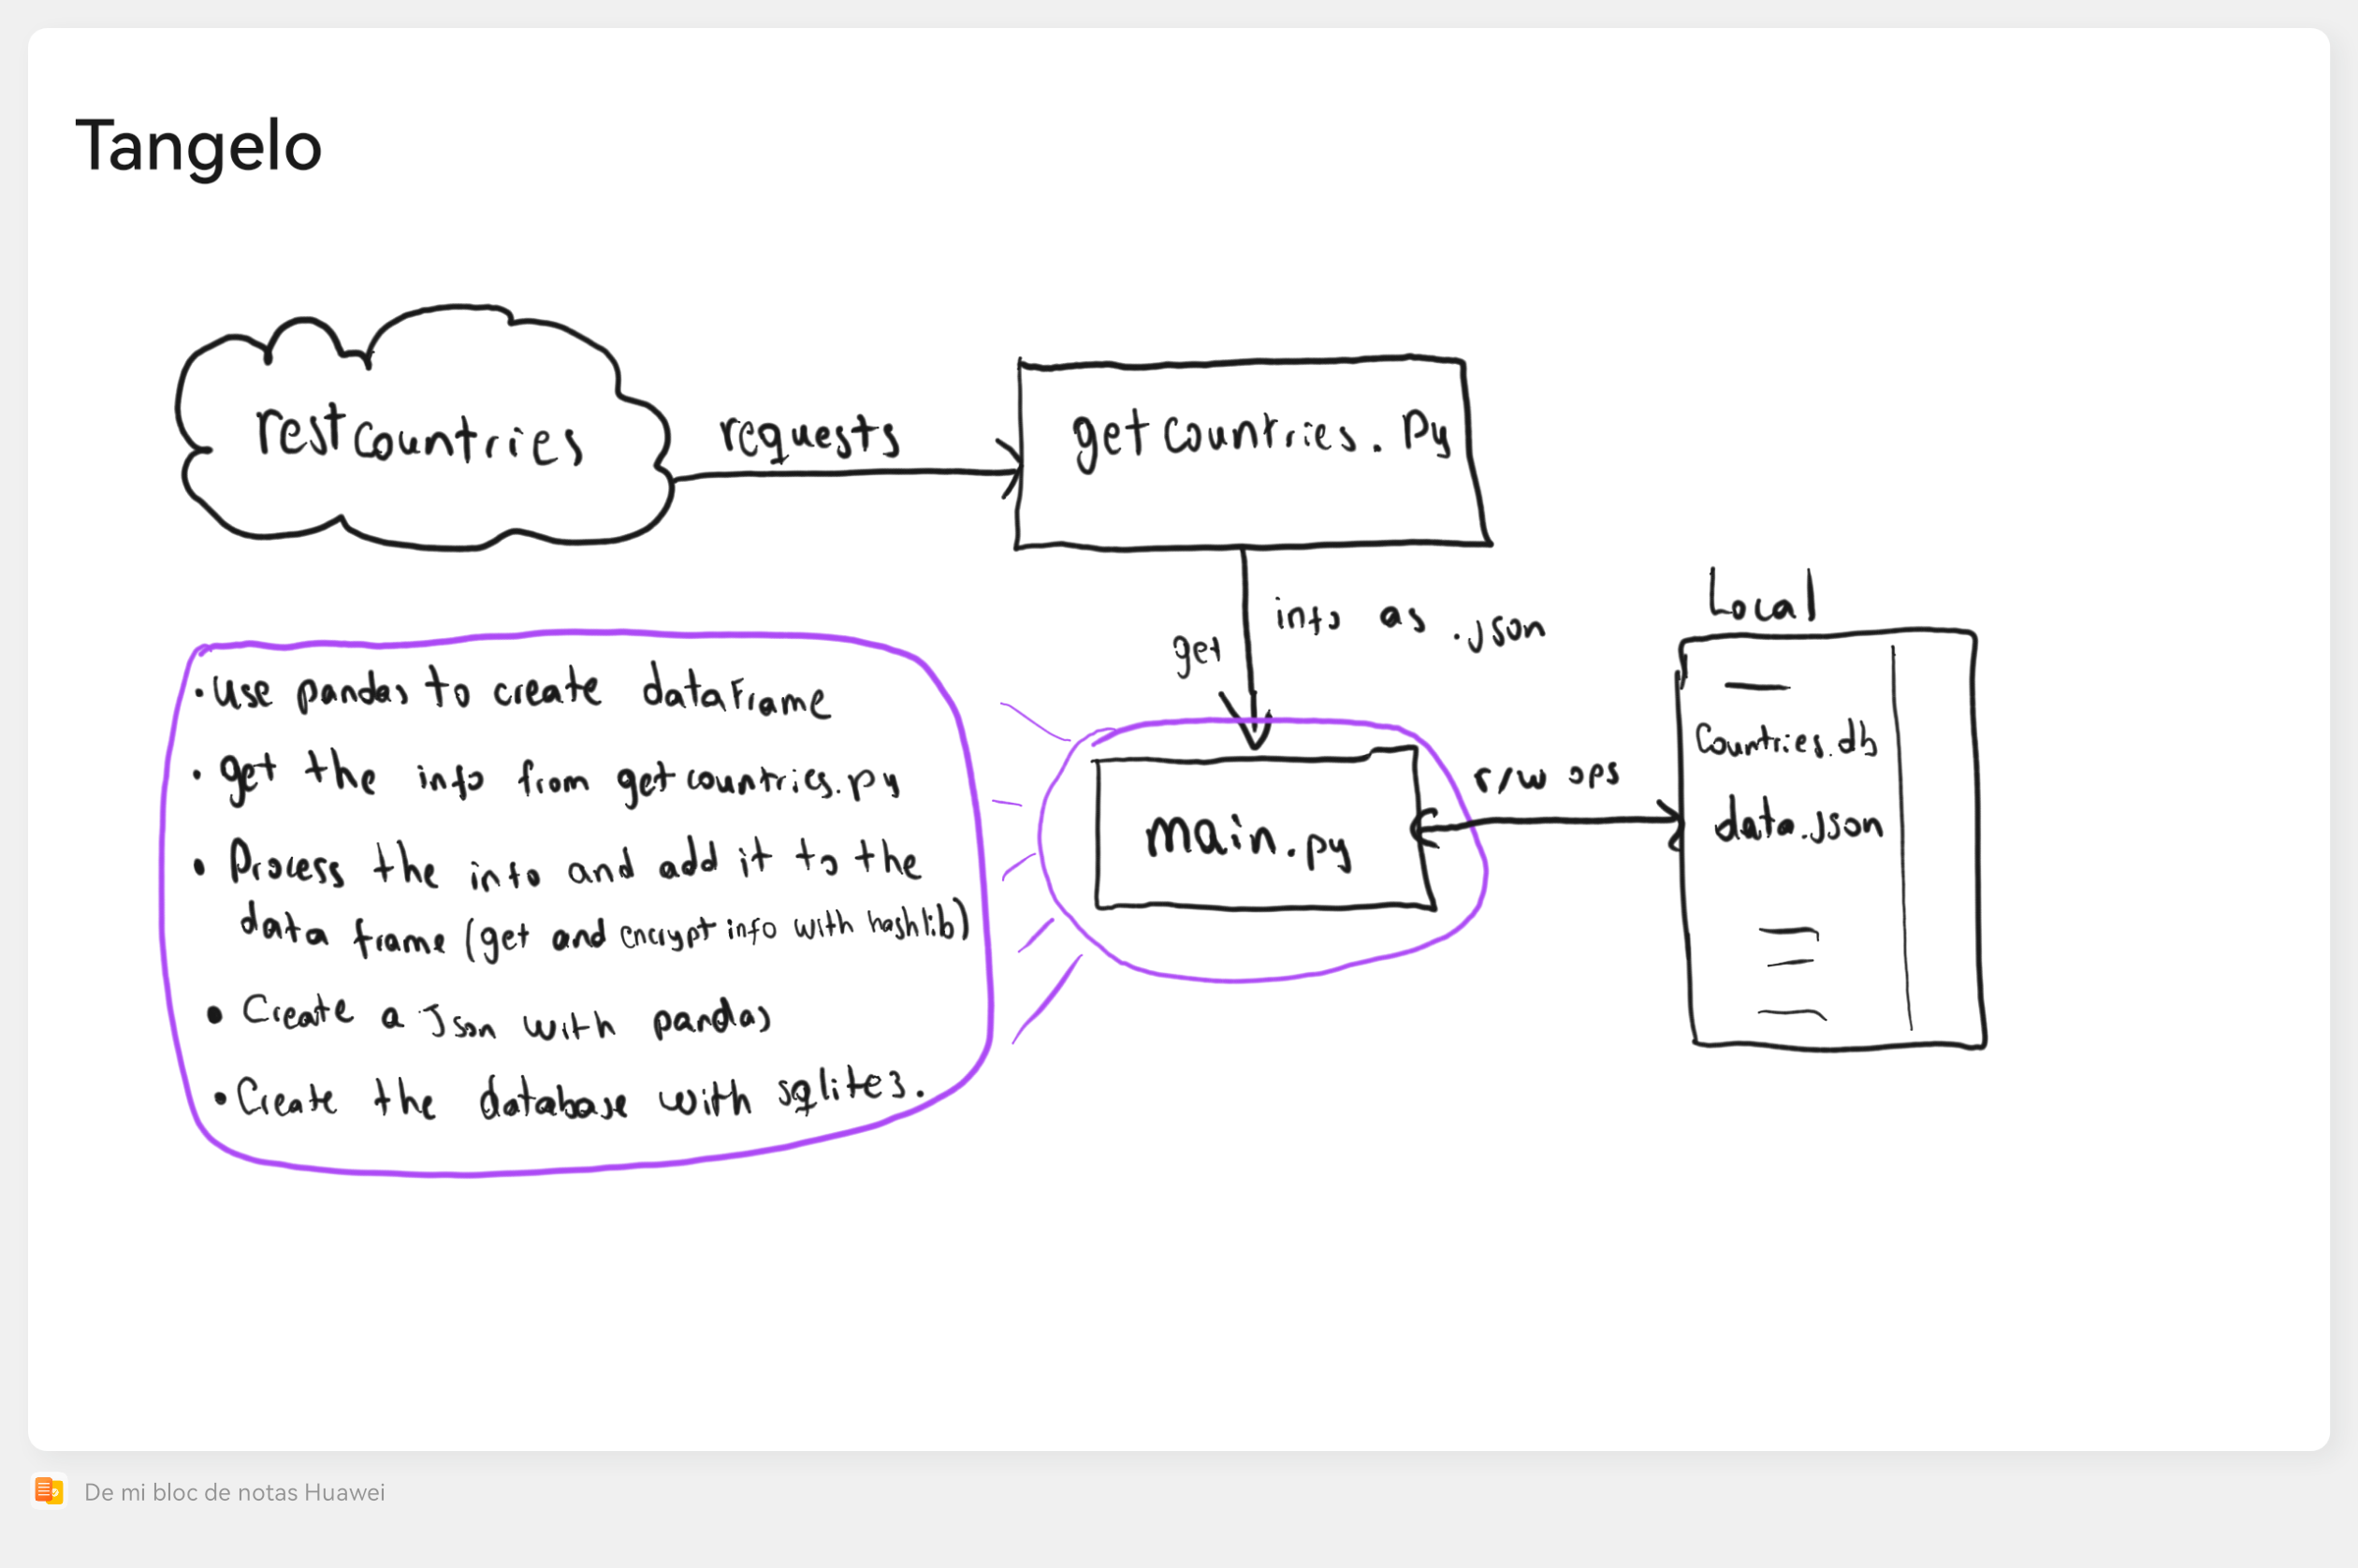 Tangelo
restcountries
requests
getcountries.py
get
info as .json
Local
countries.db
data.json
r/w ops
main.py
• use pandas to create dataframe
• get the info from getcountries.py
• Process the info and add it to the
data frame (get and encrypt info with hashlib)
• Create a Json with pandas
• Create the database with sqlite3.
De mi bloc de notas Huawei